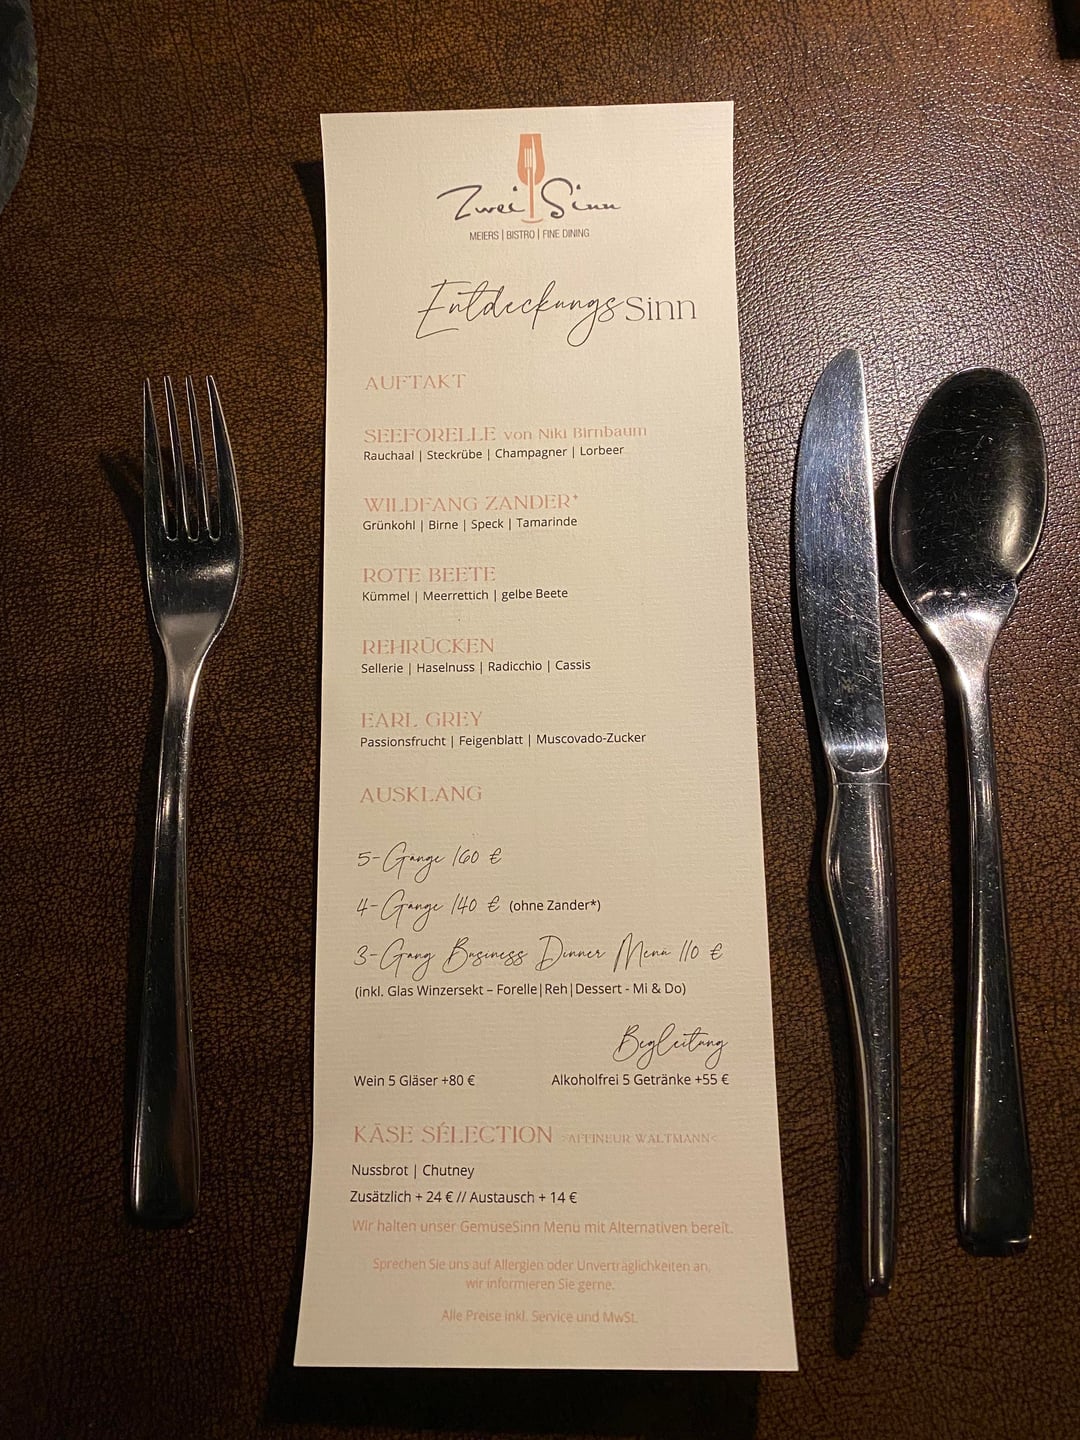 Zwei Sinn
MEIERS | BISTRO | FINE DINING
EntdeckungsSinn
AUFTAKT
SEEFORELLE von Niki Birnbaum
Rauchaal | Steckrübe | Champagner | Lorbeer
WILDFANG ZANDER*
Grünkohl | Birne | Speck | Tamarinde
ROTE BEETE
Kümmel | Meerrettich | gelbe Beete
REHRÜCKEN
Sellerie | Haselnuss | Radicchio | Cassis
EARL GREY
Passionsfrucht | Feigenblatt | Muscovado-Zucker
AUSKLANG
5-Gänge 160 €
4-Gänge 140 € (ohne Zander*)
3-Gang Business Dinner Menü 110 €
(inkl. Glas Winzersekt – Forelle|Reh|Dessert - Mi & Do)
Begleitung
Wein 5 Gläser +80 € Alkoholfrei 5 Getränke +55 €
KÄSE SÉLECTION >AFFINEUR WALTMANN<
Nussbrot | Chutney
Zusätzlich + 24 € // Austausch + 14 €
Wir halten unser GemüseSinn Menü mit Alternativen bereit.
Sprechen Sie uns auf Allergien oder Unverträglichkeiten an,
wir informieren Sie gerne.
Alle Preise inkl. Service und MwSt.